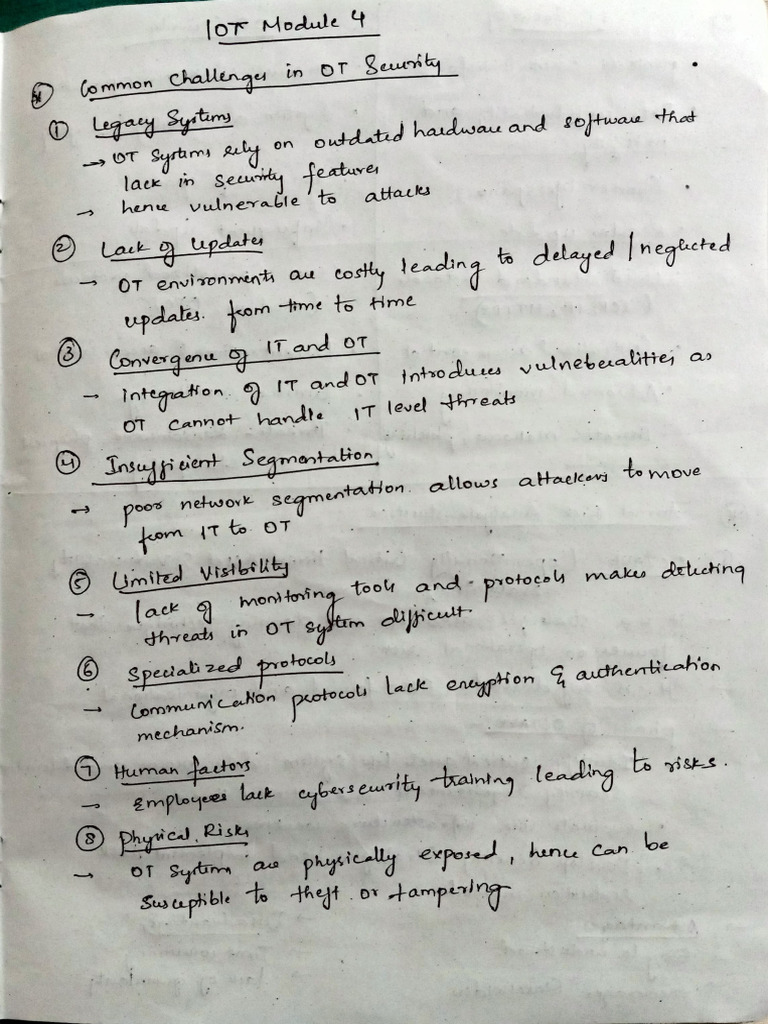 IOT Module 4
Common Challenges in OT Security
① Legacy Systems
→ OT systems rely on outdated hardware and software that
lack in security features
→ hence vulnerable to attacks
② Lack of Updates
→ OT environments are costly leading to delayed / neglected
updates. from time to time
③ Convergence of IT and OT
→ integration of IT and OT introduces vulneberalities as
OT cannot handle IT level threats
④ Insufficient Segmentation
→ poor network segmentation allows attackers to move
from IT to OT
⑤ Limited Visibility
→ lack of monitoring tools and protocols makes detecting
threats in OT system difficult.
⑥ Specialized protocols
→ communication protocols lack encryption & authentication
mechanism.
⑦ Human factors
→ Employees lack cybersecurity training leading to risks.
⑧ Physical Risks
→ OT Systems are physically exposed, hence can be
susceptible to theft or tampering